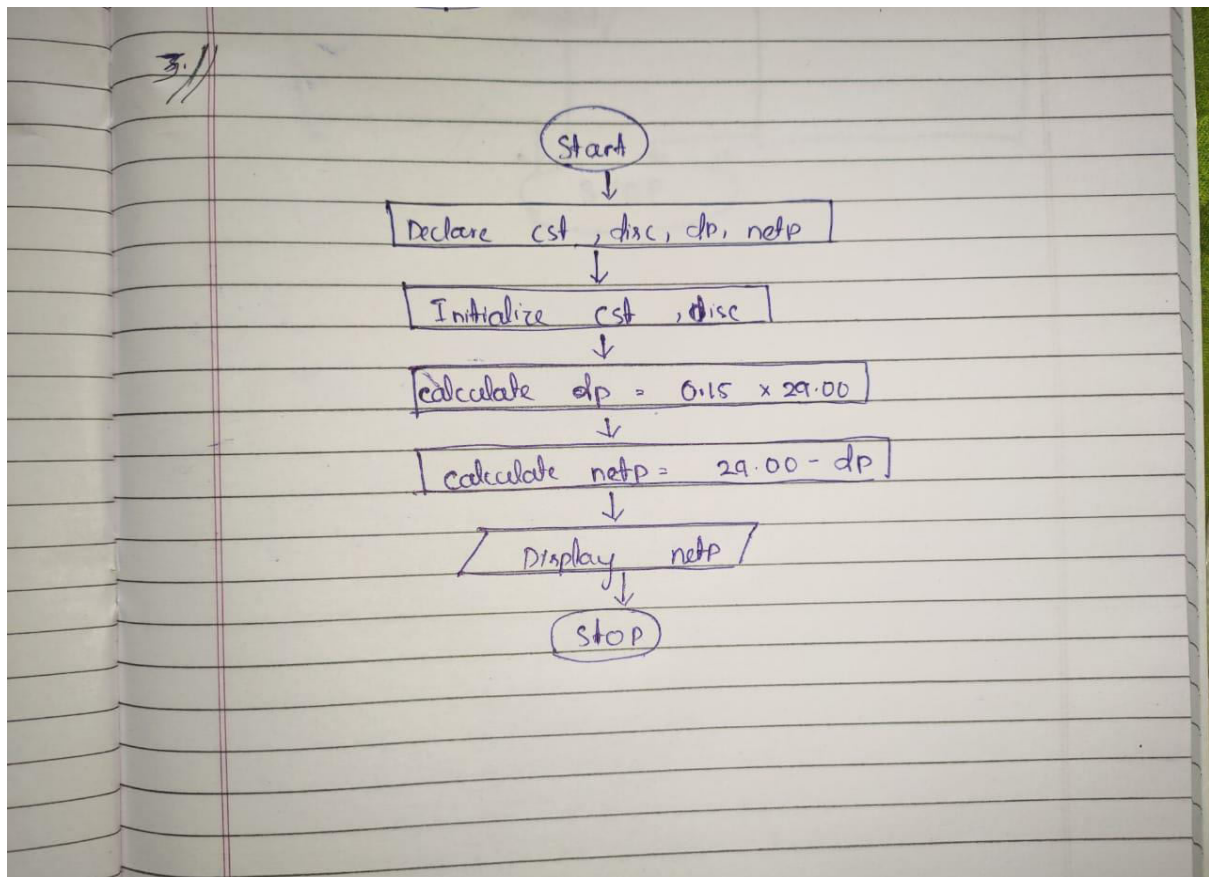 3.
Start
Declare cst, disc, dp, netp
Initialize cst, disc
calculate dp = 0.15 x 29.00
calculate netp = 29.00 - dp
Display netp
Stop